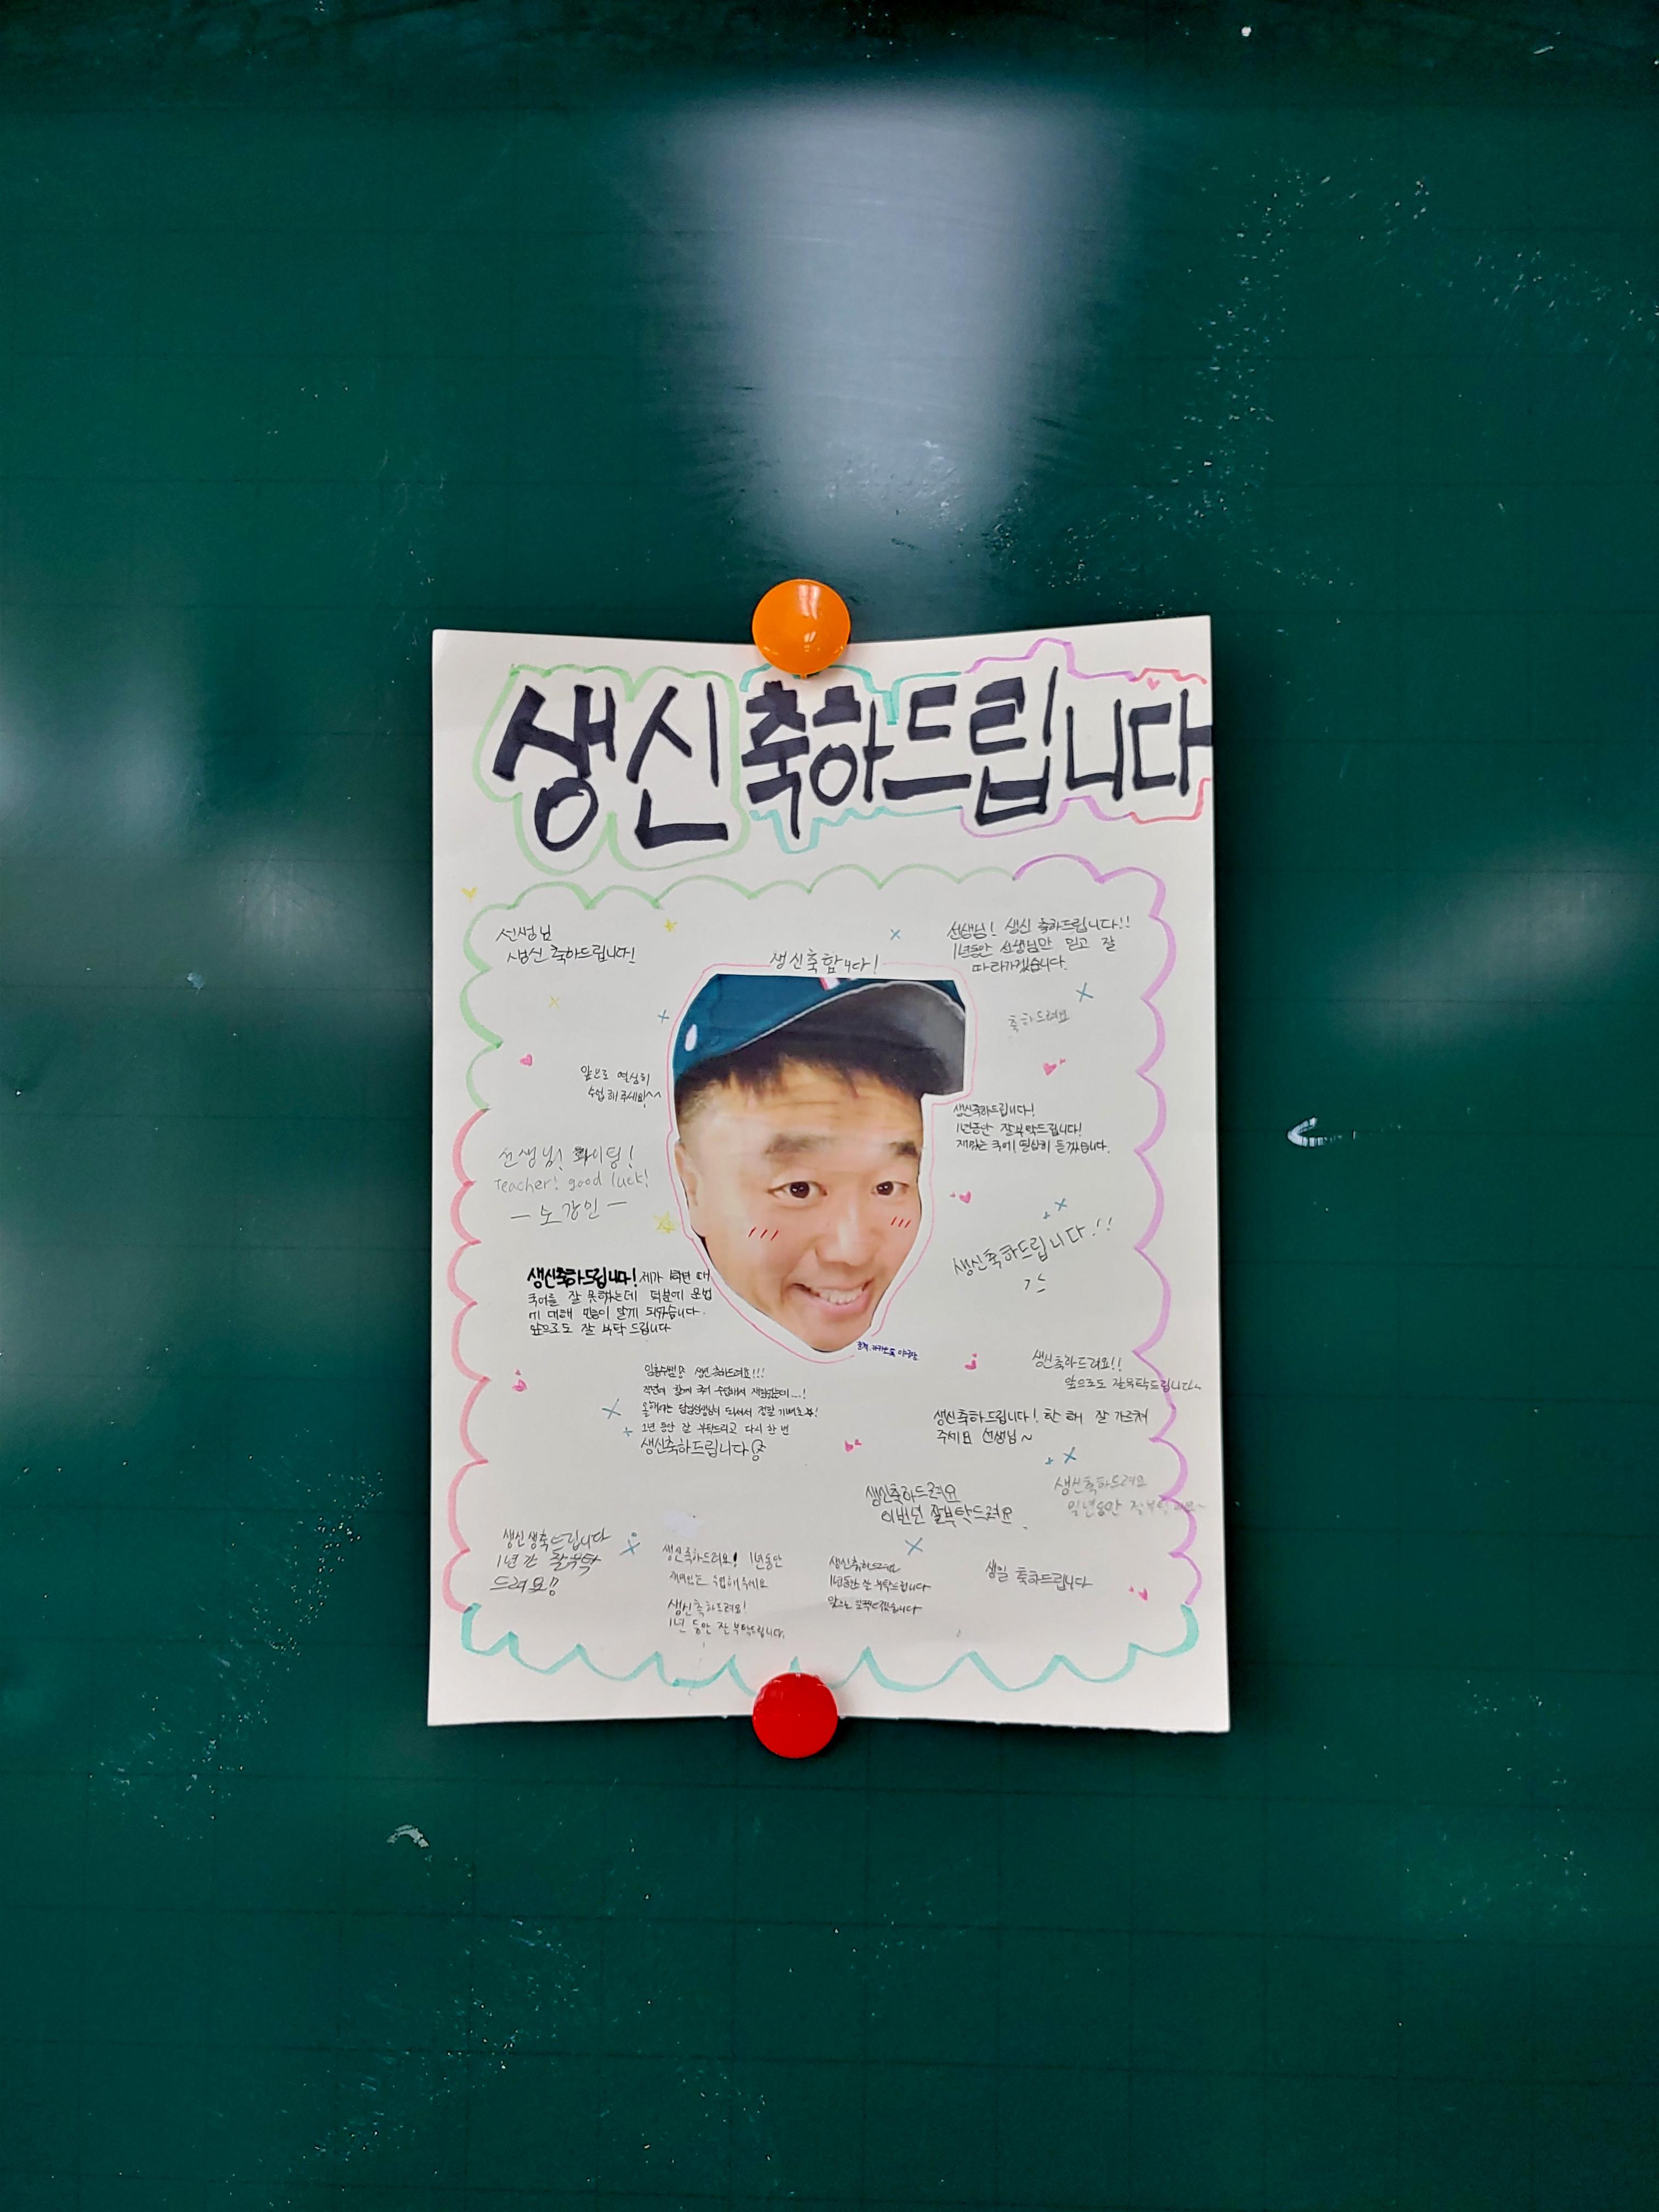 생신 축하드립니다
선생님
생신 축하드립니다!
생신축합니다!
선생님! 생신 축하드립니다!!
1년동안 선생님만 믿고 잘
따라가겠습니다.
축하드려요
앞으로 열심히
수업 해주세요!^^
생신축하드립니다!
1년동안 잘부탁드립니다!
재밌는 국어 열심히 듣겠습니다.
선생님! 화이팅!
Teacher! good luck!
— 노강민 —
생신축하드립니다!!
생신축하드립니다! 제가 1학년 때
국어를 잘 못하는데 덕분에 문법
에 대해 많이 알게 되었습니다.
앞으로도 잘 부탁 드립니다
생신 축하드려요!!!
작년에 함께 국어 수업해서 재밌었는데...!
올해에는 담임선생님이 되셔서 정말 기뻐요!
1년 동안 잘 부탁드리고 다시 한 번
생신축하드립니다
생신축하드려요!!
앞으로도 잘부탁드립니다~
생신축하드립니다! 한 해 잘 가르쳐
주세요 선생님~
생신축하드려요
이번년 잘부탁드려요
생신축하드려요
일년동안
생신생축드립니다
1년간 잘부탁
드려요!!
생신축하드려요! 1년동안
재미있는 수업해주세요
생신축하드려요!
1년 동안 잘 부탁드립니다.
1년동안 잘 부탁드립니다
생일 축하드립니다